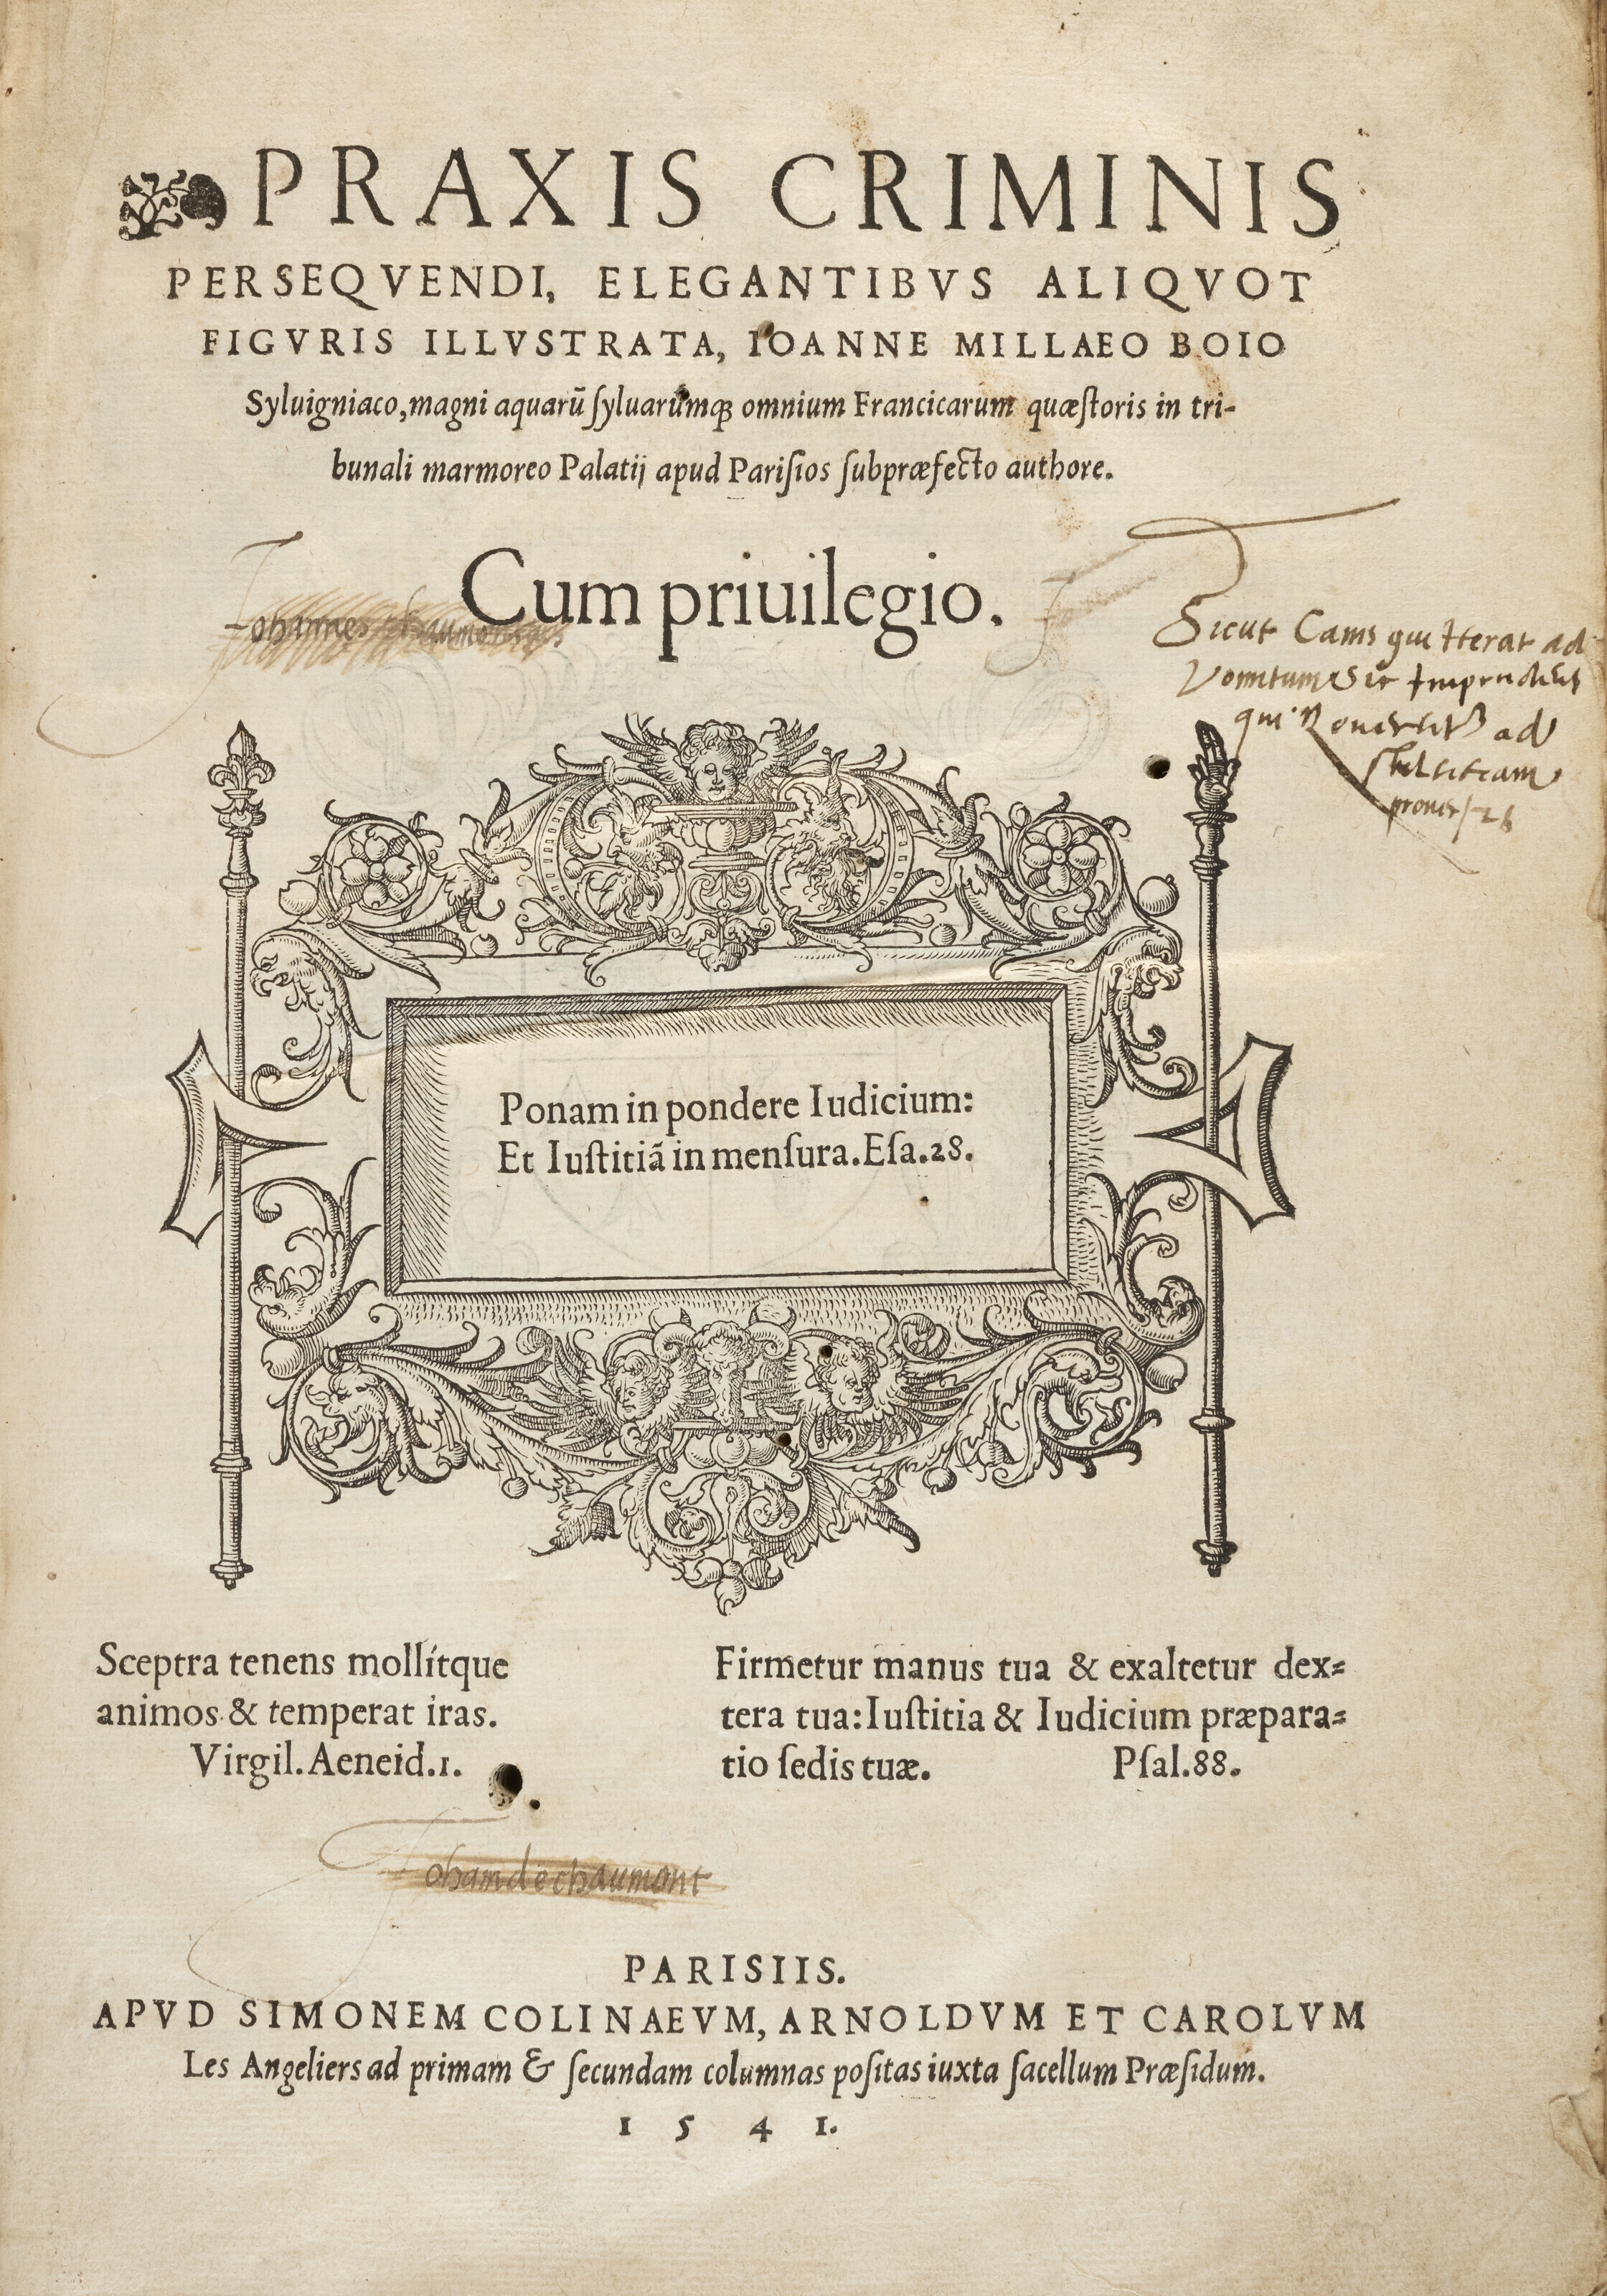 PRAXIS CRIMINIS
PERSEQVENDI, ELEGANTIBVS ALIQVOT
FIGVRIS ILLVSTRATA, IOANNE MILLAEO BOIO
Syluigniaco, magni aquarū ſyluarumq; omnium Francicarum quæſtoris in tri-
bunali marmoreo Palatij apud Pariſios ſubpræfecto authore.
Cum priuilegio.
Johannes
Sicut Canis qui Iterat ad
Vomitum Sic Imprudens
qui ad
prouer 26
Ponam in pondere Iudicium:
Et Iuſtitiā in menſura. Eſa.28.
Sceptra tenens mollitque
animos & temperat iras.
Virgil. Aeneid.1.
Firmetur manus tua & exaltetur dex=
tera tua: Iuſtitia & Iudicium præpara=
tio ſedis tuæ. Pſal.88.
Joham de chaumont
PARISIIS.
APVD SIMONEM COLINAEVM, ARNOLDVM ET CAROLVM
Les Angeliers ad primam & ſecundam columnas poſitas iuxta ſacellum Præſidum.
1 5 4 1.